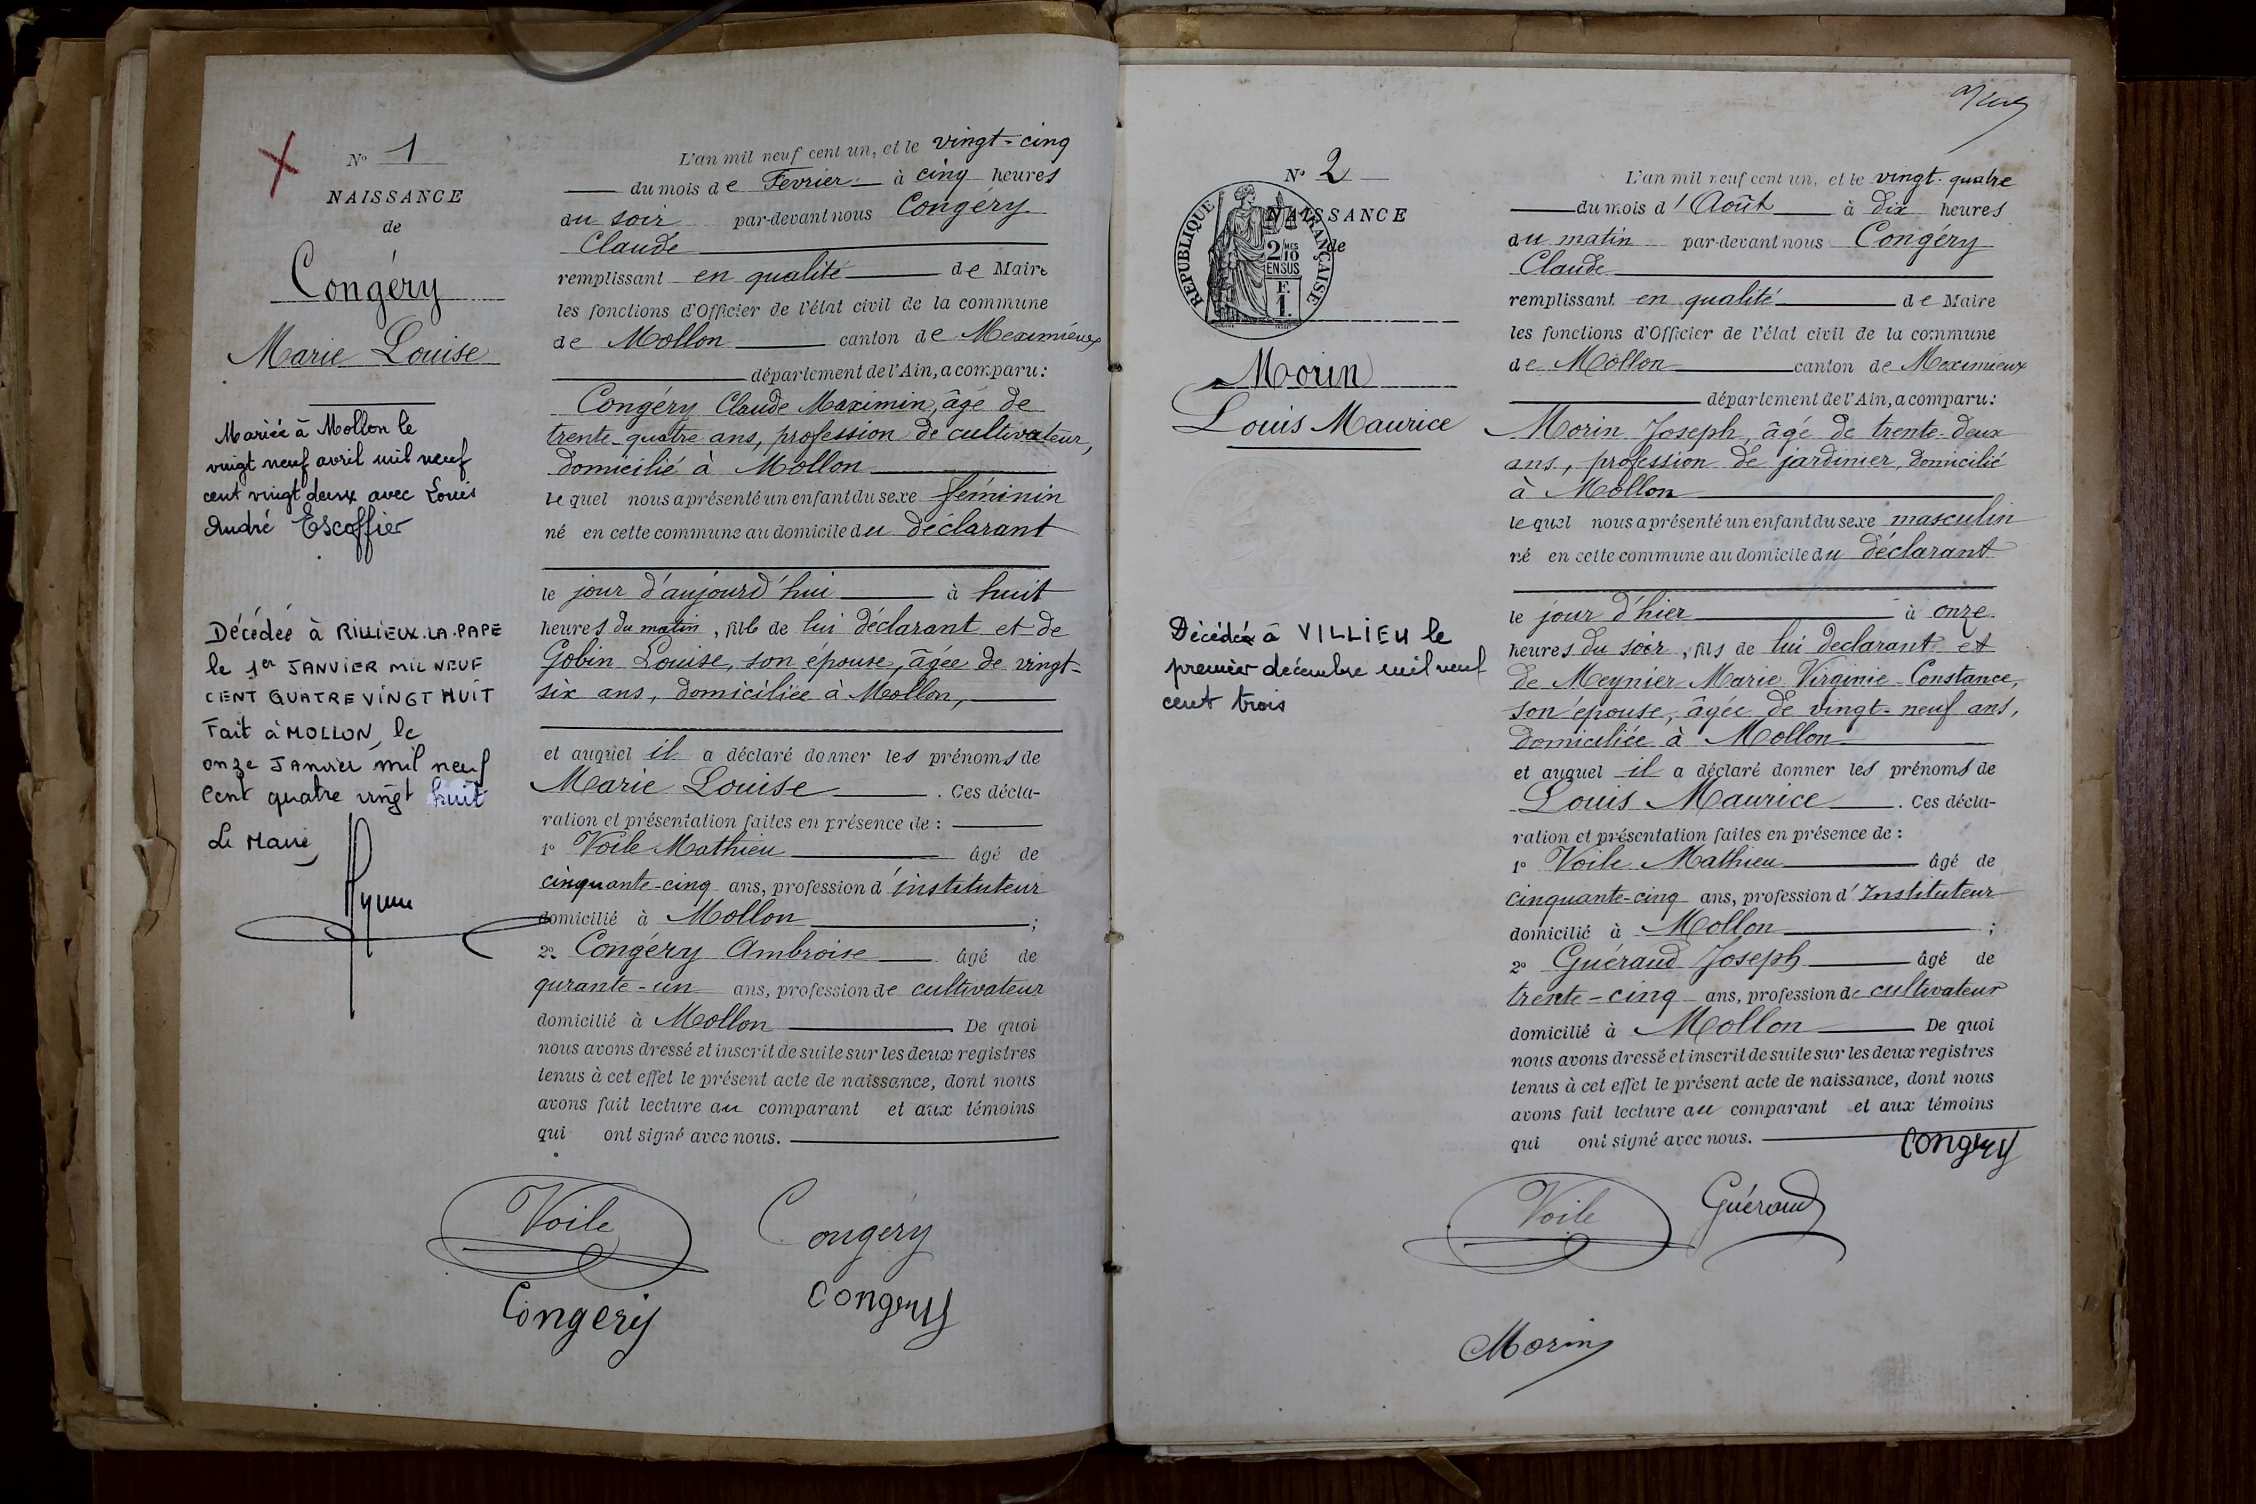 N° 1
NAISSANCE
de
Congéry
Marie Louise
Mariée à Mollon le
vingt neuf avril mil neuf
cent vingt deux avec Louis
André Escoffier
Décédée à RILLIEUX.LA.PAPE
le 1er JANVIER MIL NEUF
CENT QUATRE VINGT HUIT
Fait à MOLLON, le
onze JANVIER mil neuf
Cent quatre vingt huit
Le Maire,
L'an mil neuf cent un, et le vingt-cinq
du mois de Fevrier à cinq heures
du soir par-devant nous Congéry
Claude
remplissant en qualité de Maire
les fonctions d'Officier de l'état civil de la commune
de Mollon canton de Meximieux
département de l'Ain, a comparu:
Congéry Claude Maximin, âgé de
trente-quatre ans, profession de cultivateur,
domicilié à Mollon
le quel nous a présenté un enfant du sexe féminin
né en cette commune au domicile du déclarant
le jour d'aujourd'hui à huit
heures du matin, fille de lui déclarant et de
Gobin Louise, son épouse, âgée de vingt-
six ans, domiciliée à Mollon,
et auquel il a déclaré donner les prénoms de
Marie Louise . Ces décla-
ration et présentation faites en présence de :
1° Voile Mathieu âgé de
cinquante-cinq ans, profession d'instituteur
domicilié à Mollon ;
2° Congéry Ambroise âgé de
qurante-un ans, profession de cultivateur
domicilié à Mollon . De quoi
nous avons dressé et inscrit de suite sur les deux registres
tenus à cet effet le présent acte de naissance, dont nous
avons fait lecture au comparant et aux témoins
qui ont signé avec nous.
Voile
Congéry
Congery
Congery
N° 2
NAISSANCE
de
REPUBLIQUE FRANÇAISE
2/10 MES
EN SUS
F.
1.
Morin
Louis Maurice
Décédé à VILLIEU le
premier décembre mil neuf
cent trois
L'an mil neuf cent un, et le vingt-quatre
du mois d'Août à dix heures
du matin par-devant nous Congéry
Claude
remplissant en qualité de Maire
les fonctions d'Officier de l'état civil de la commune
de Mollon canton de Meximieux
département de l'Ain, a comparu:
Morin Joseph, âgé de trente-deux
ans, profession de jardinier, domicilié
à Mollon
le quel nous a présenté un enfant du sexe masculin
né en cette commune au domicile du déclarant
le jour d'hier à onze
heures du soir, fils de lui declarant et
de Meynier Marie Virginie Constance,
son épouse, âgée de vingt-neuf ans,
domiciliée à Mollon
et auquel il a déclaré donner les prénoms de
Louis Maurice . Ces décla-
ration et présentation faites en présence de :
1° Voile Mathieu âgé de
cinquante-cinq ans, profession d'Instituteur
domicilié à Mollon ;
2° Guéraud Joseph âgé de
trente-cinq ans, profession de cultivateur
domicilié à Mollon De quoi
nous avons dressé et inscrit de suite sur les deux registres
tenus à cet effet le présent acte de naissance, dont nous
avons fait lecture au comparant et aux témoins
qui ont signé avec nous.
Congery
Voile
Guéraud
Morin